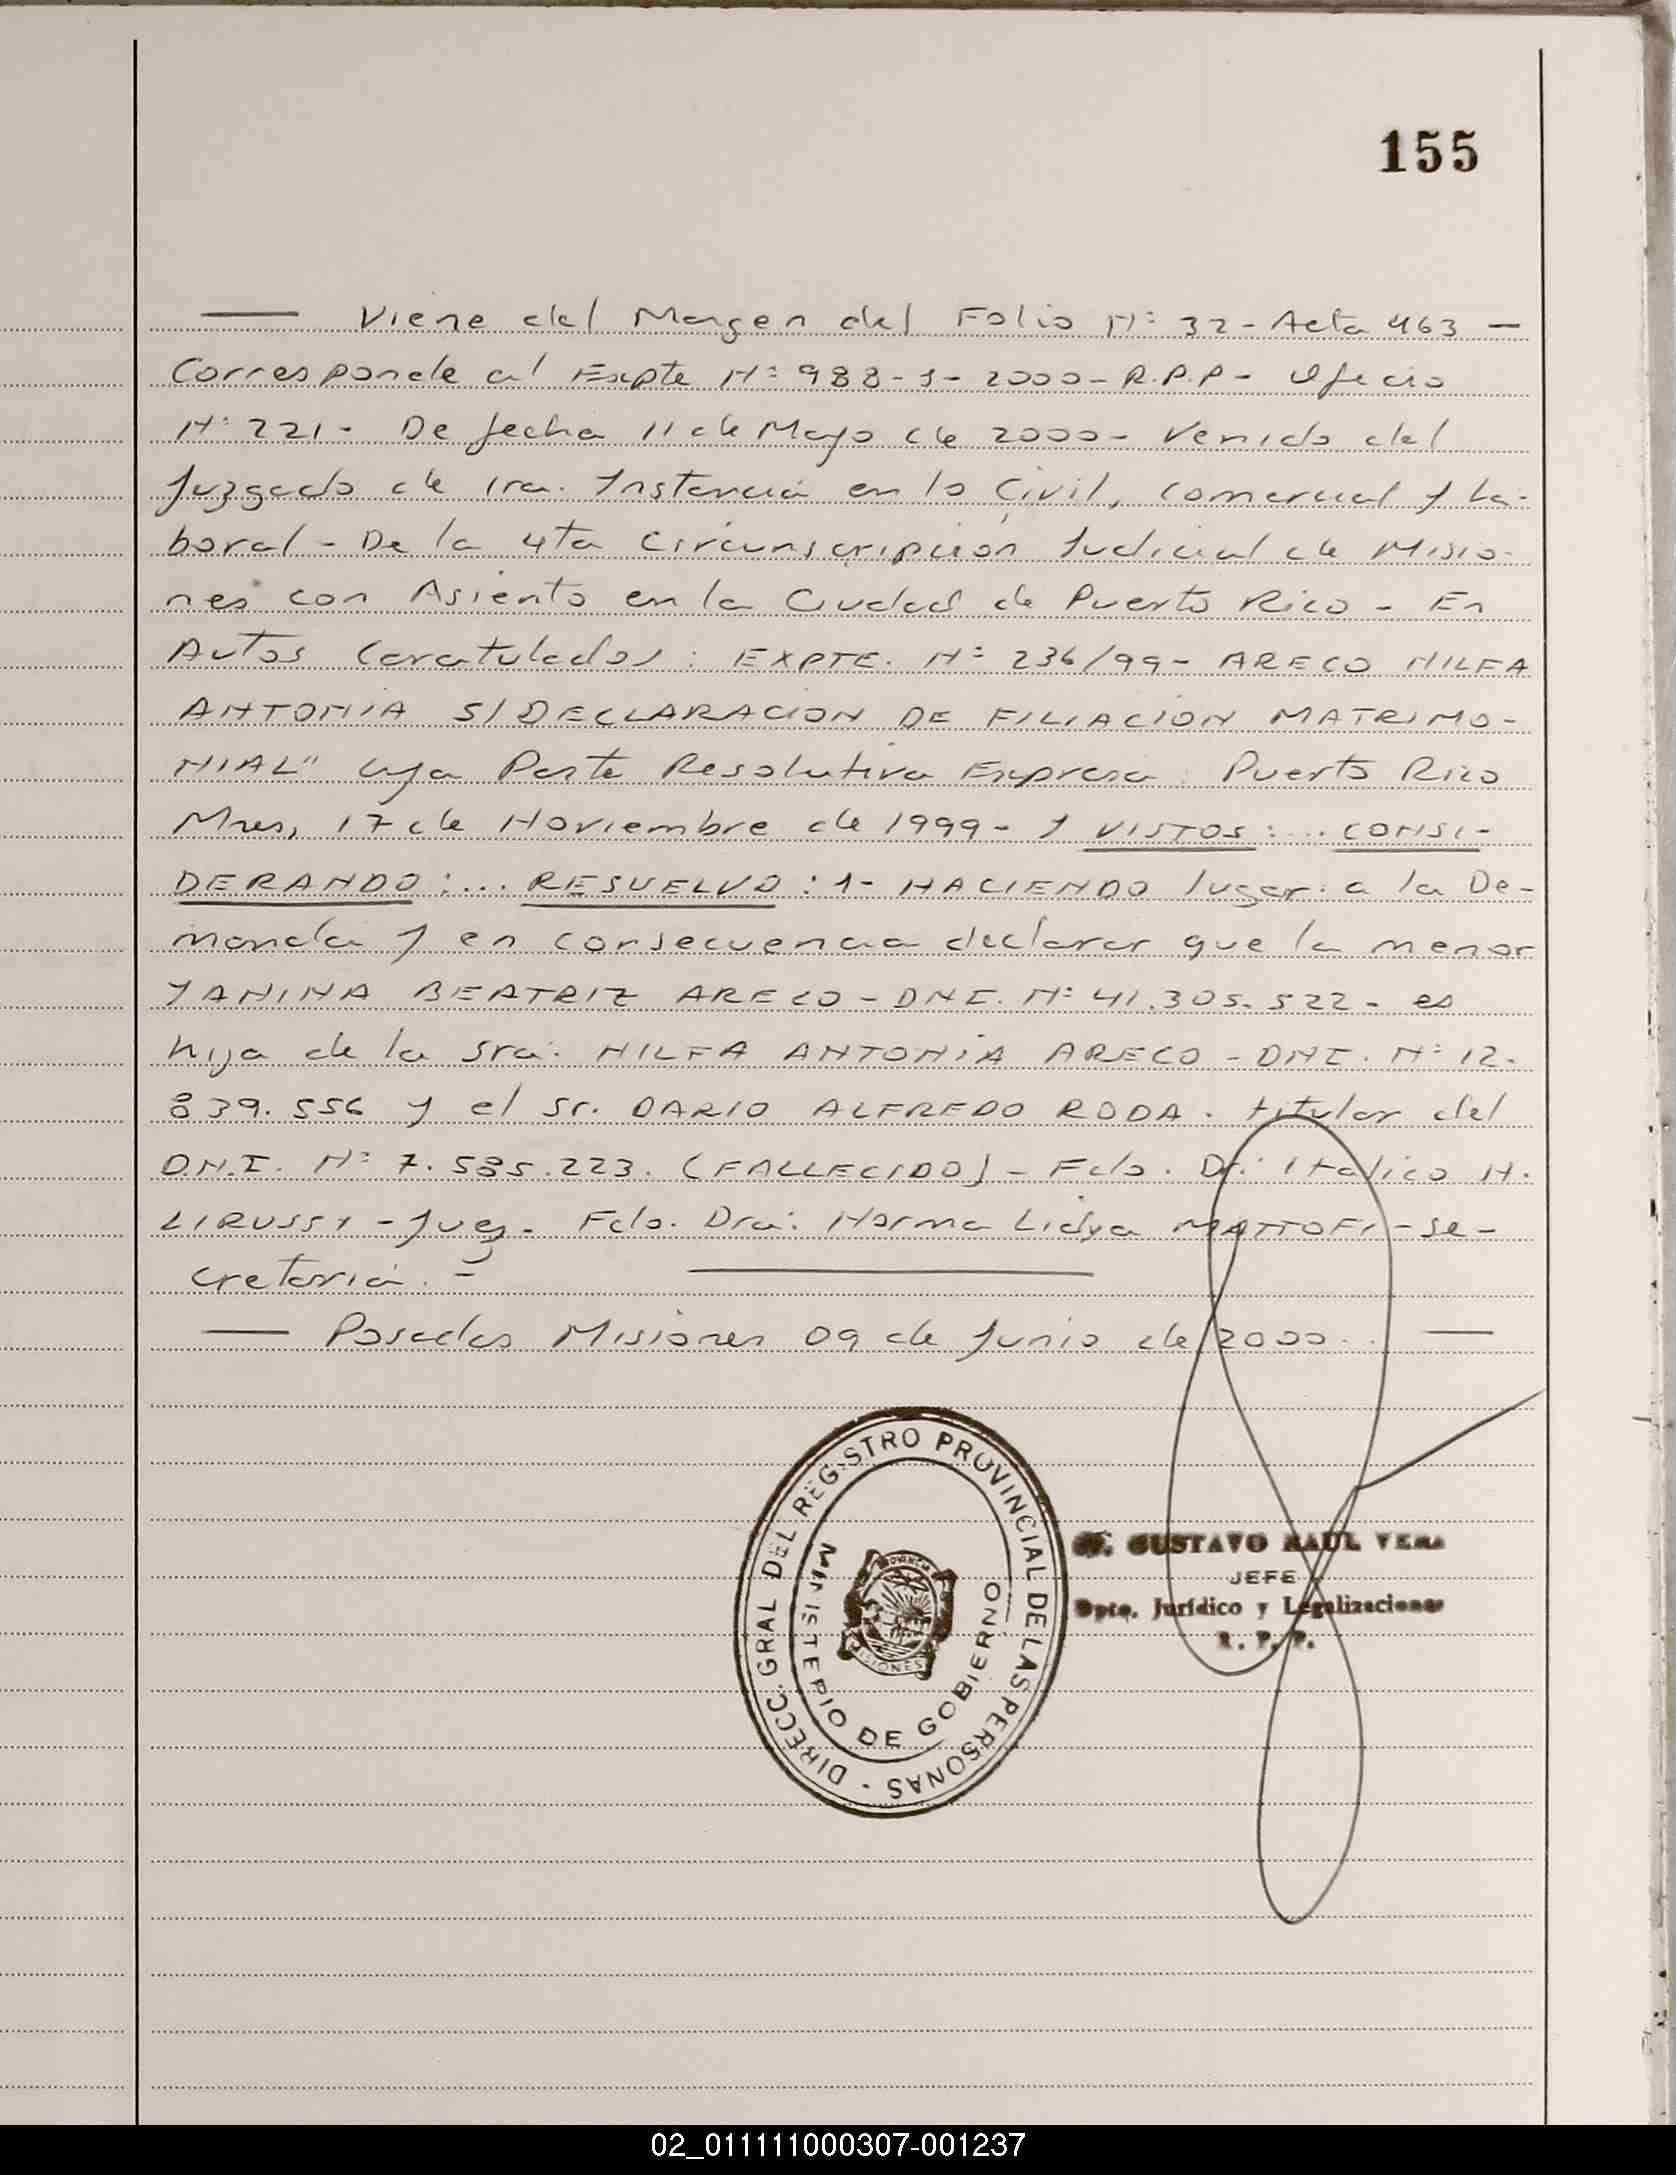 155
Viene del Margen del Folio N: 32 - Acta 463 -
Corresponde al Expte N: 988-J-2000- R.P.P- Oficio
N: 221 - De fecha 11 de Mayo de 2000 - Venido del
Juzgado de 1ra. Instancia en lo Civil, Comercial y La-
boral - De la 4ta Circunscripción Judicial de Misio-
nes con Asiento en la Ciudad de Puerto Rico - En
Autos Caratulados: EXPTE. N: 236/99 - ARECO NILFA
ANTONIA S/DECLARACION DE FILIACION MATRIMO-
NIAL" cuya Parte Resolutiva Expresa: Puerto Rico
Mnes, 17 de Noviembre de 1999 - Y VISTOS:... CONSI-
DERANDO:... RESUELVO: 1- HACIENDO lugar a la De-
manda y en consecuencia declarar que la menor
YANINA BEATRIZ ARECO - DNI. N: 41.305.522 - es
hija de la Sra. NILFA ANTONIA ARECO - DNI. N: 12.
839.556 y el Sr. DARIO ALFREDO RODA. titular del
D.N.I. N: 7.585.223. (FALLECIDO) - Fdo. Dr. Italico N.
LIRUSSI - Juez - Fdo. Dra. Norma Lidya - Se-
cretaria. -
Posadas Misiones 09 de Junio de 2000.
DIRECC. GRAL DEL REGISTRO PROVINCIAL DE LAS PERSONAS -
MINISTERIO DE GOBIERNO
PROVINCIA
MISIONES
GUSTAVO RAUL VERA
JEFE
Dpto. Jurídico y Legalizaciones
R. P. P.
02_011111000307-001237